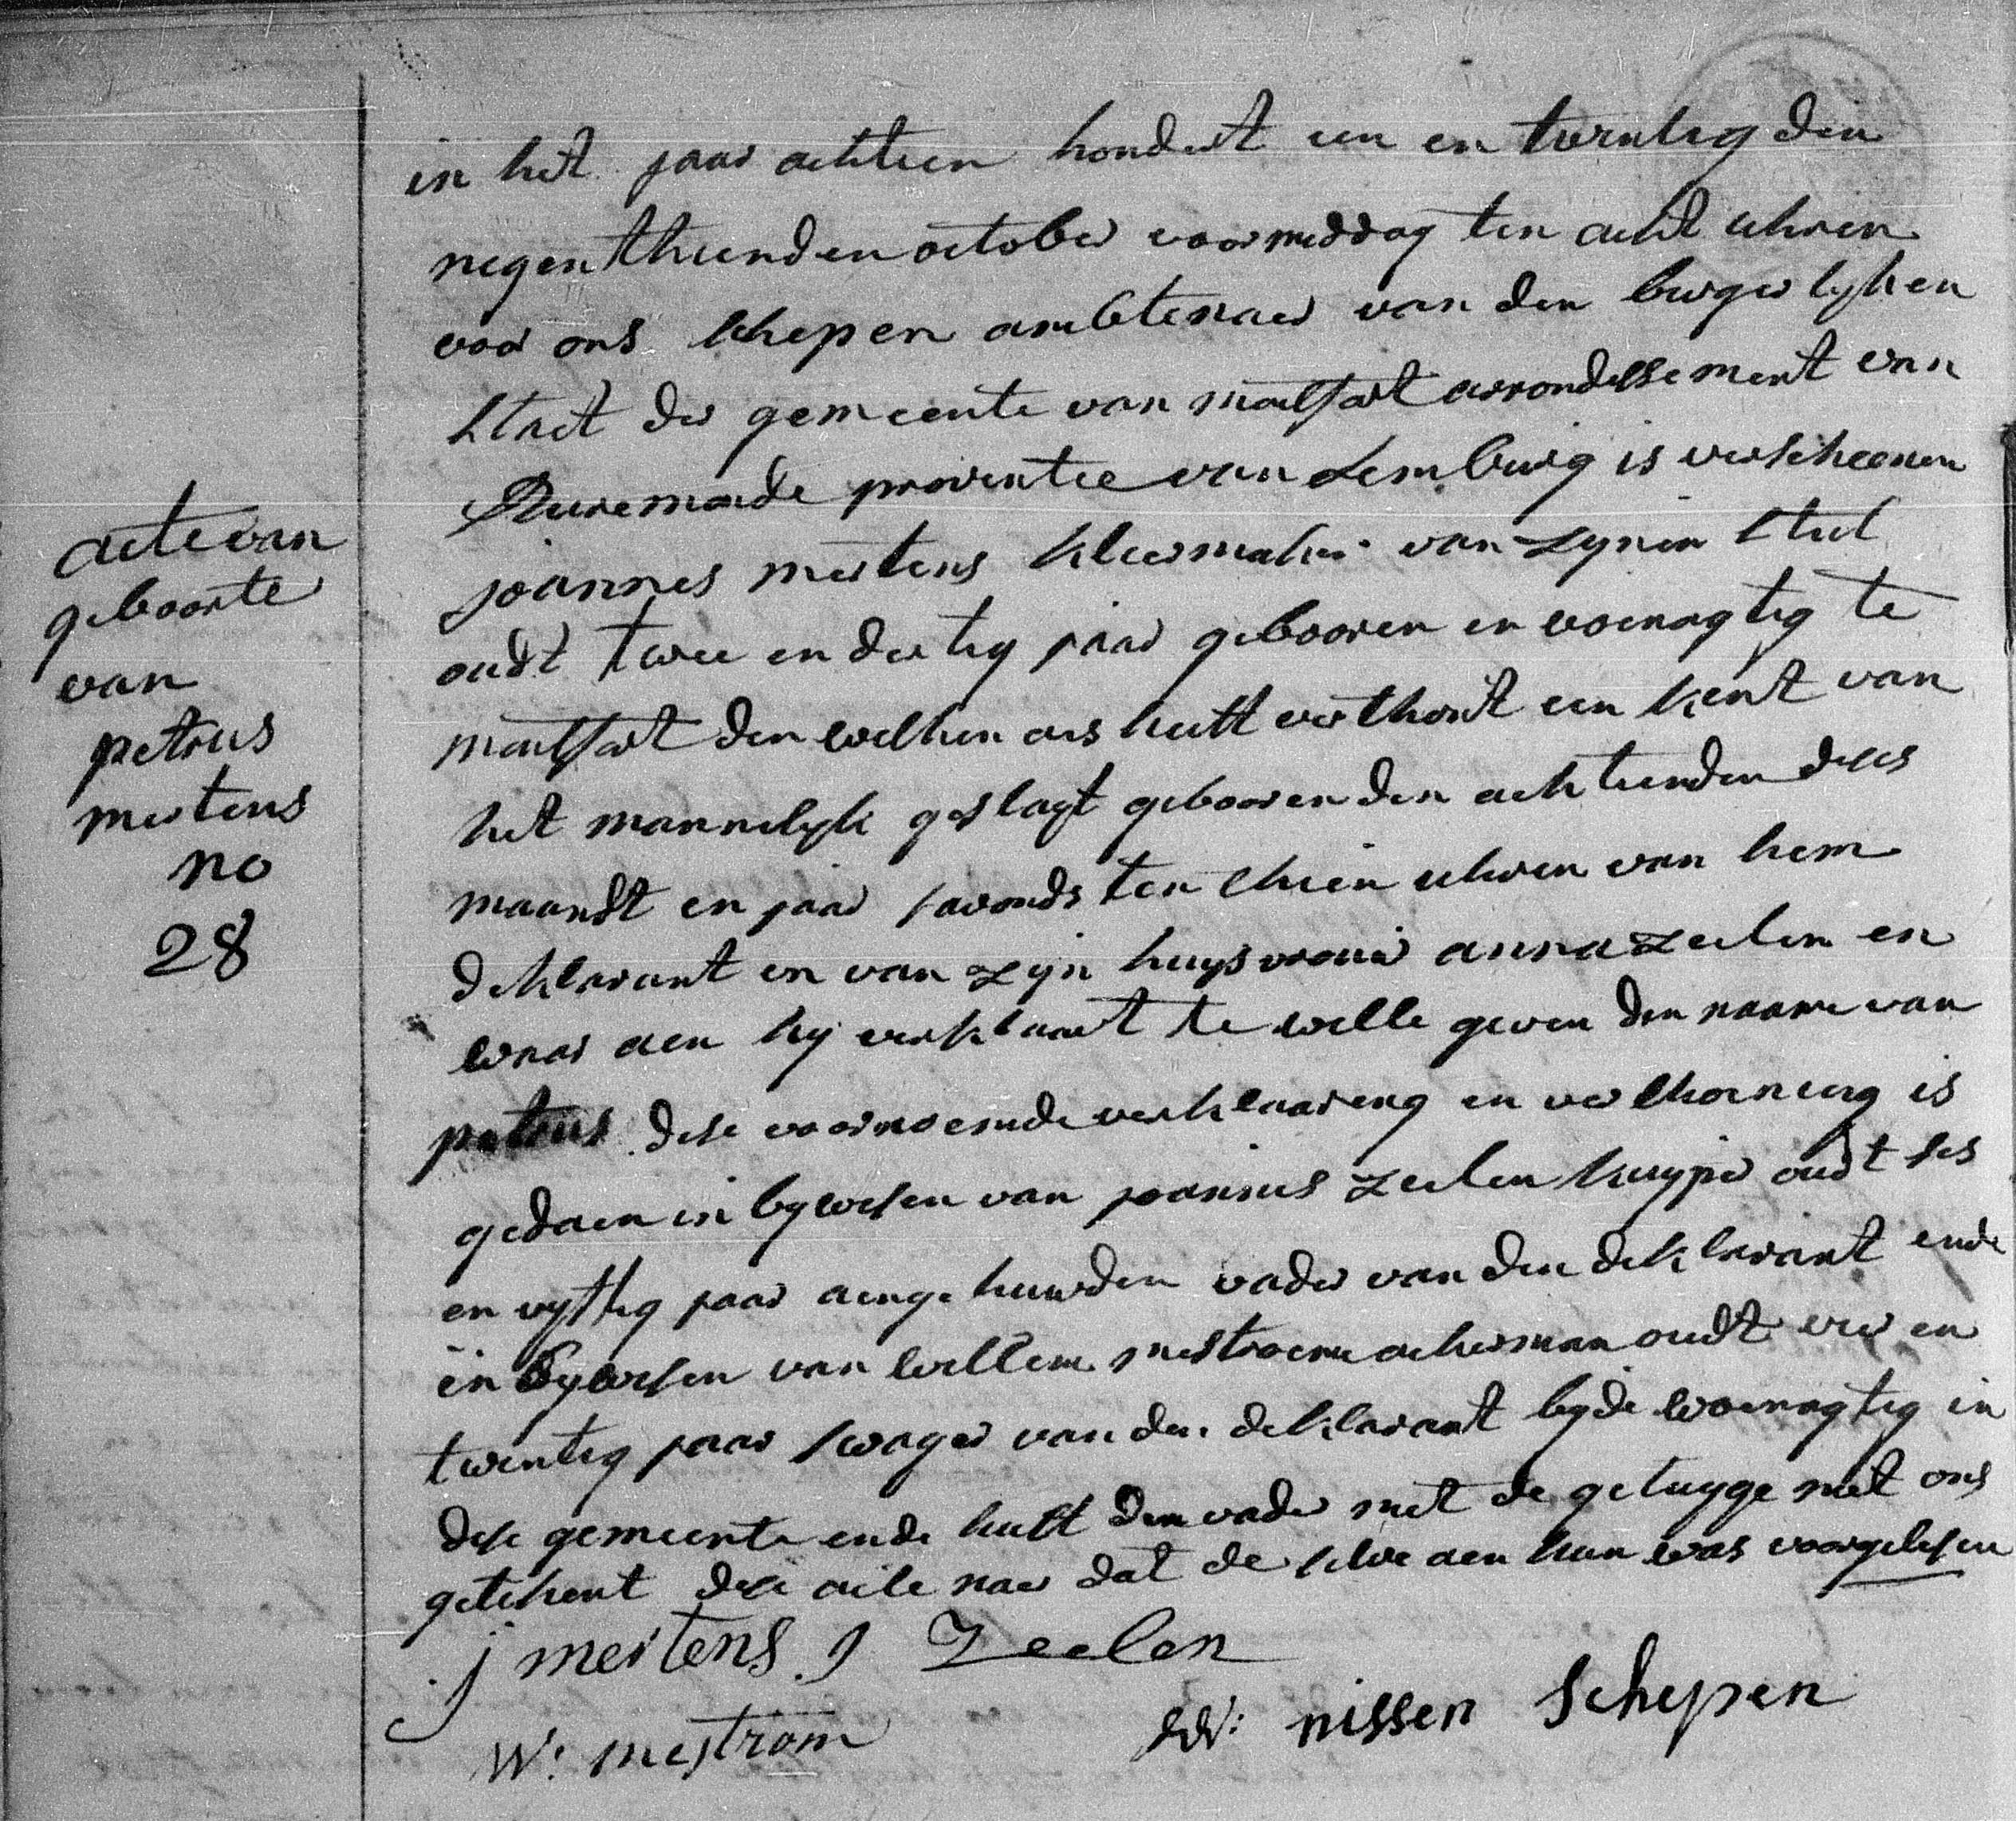 acte van
geboorte
van
petrus
mertens
no
28
in het jaar achteen hondert een en twentig den
negenthienden october voormeddag ten acht uhren
voor ons schepen ambtenaer van den burgerlyken
staet der gemeente van maesfort arrondessement van
Ruremonde provintie van Lemburg is verscheenen
joannes mertens kleermaker van zynen stiel
oudt twee en dertig jaar gebooren en woenagtig te
maesfort den welken ons heeft verthont een kent van
het mannelyk geslagt gebooren den achteenden deses
maandt en jaar savonds ten thien uhren van hem
deklarant en van zyn huysvrouw anna zeelen en
waar aen hy verklaart te welle geven den naame van
petrus dese voornoemde verklaareng en verthoneng is
gedaen in bywesen van joannes zeelen kuyper oudt ses
en vyftig jaar aengehuwden vader van den deklarant ende
in bywesen van wellem mestroem ackerman oudt vier en
twentig jaar swager van den deklarant byde woenagtig in
dese gemeente ende heeft den vader met de getuyge met ons
getekent dese acte naer dat de selve aen hun was voorgelesen
j mertens J Zeelen
W: mestrom
W: nissen Schepen